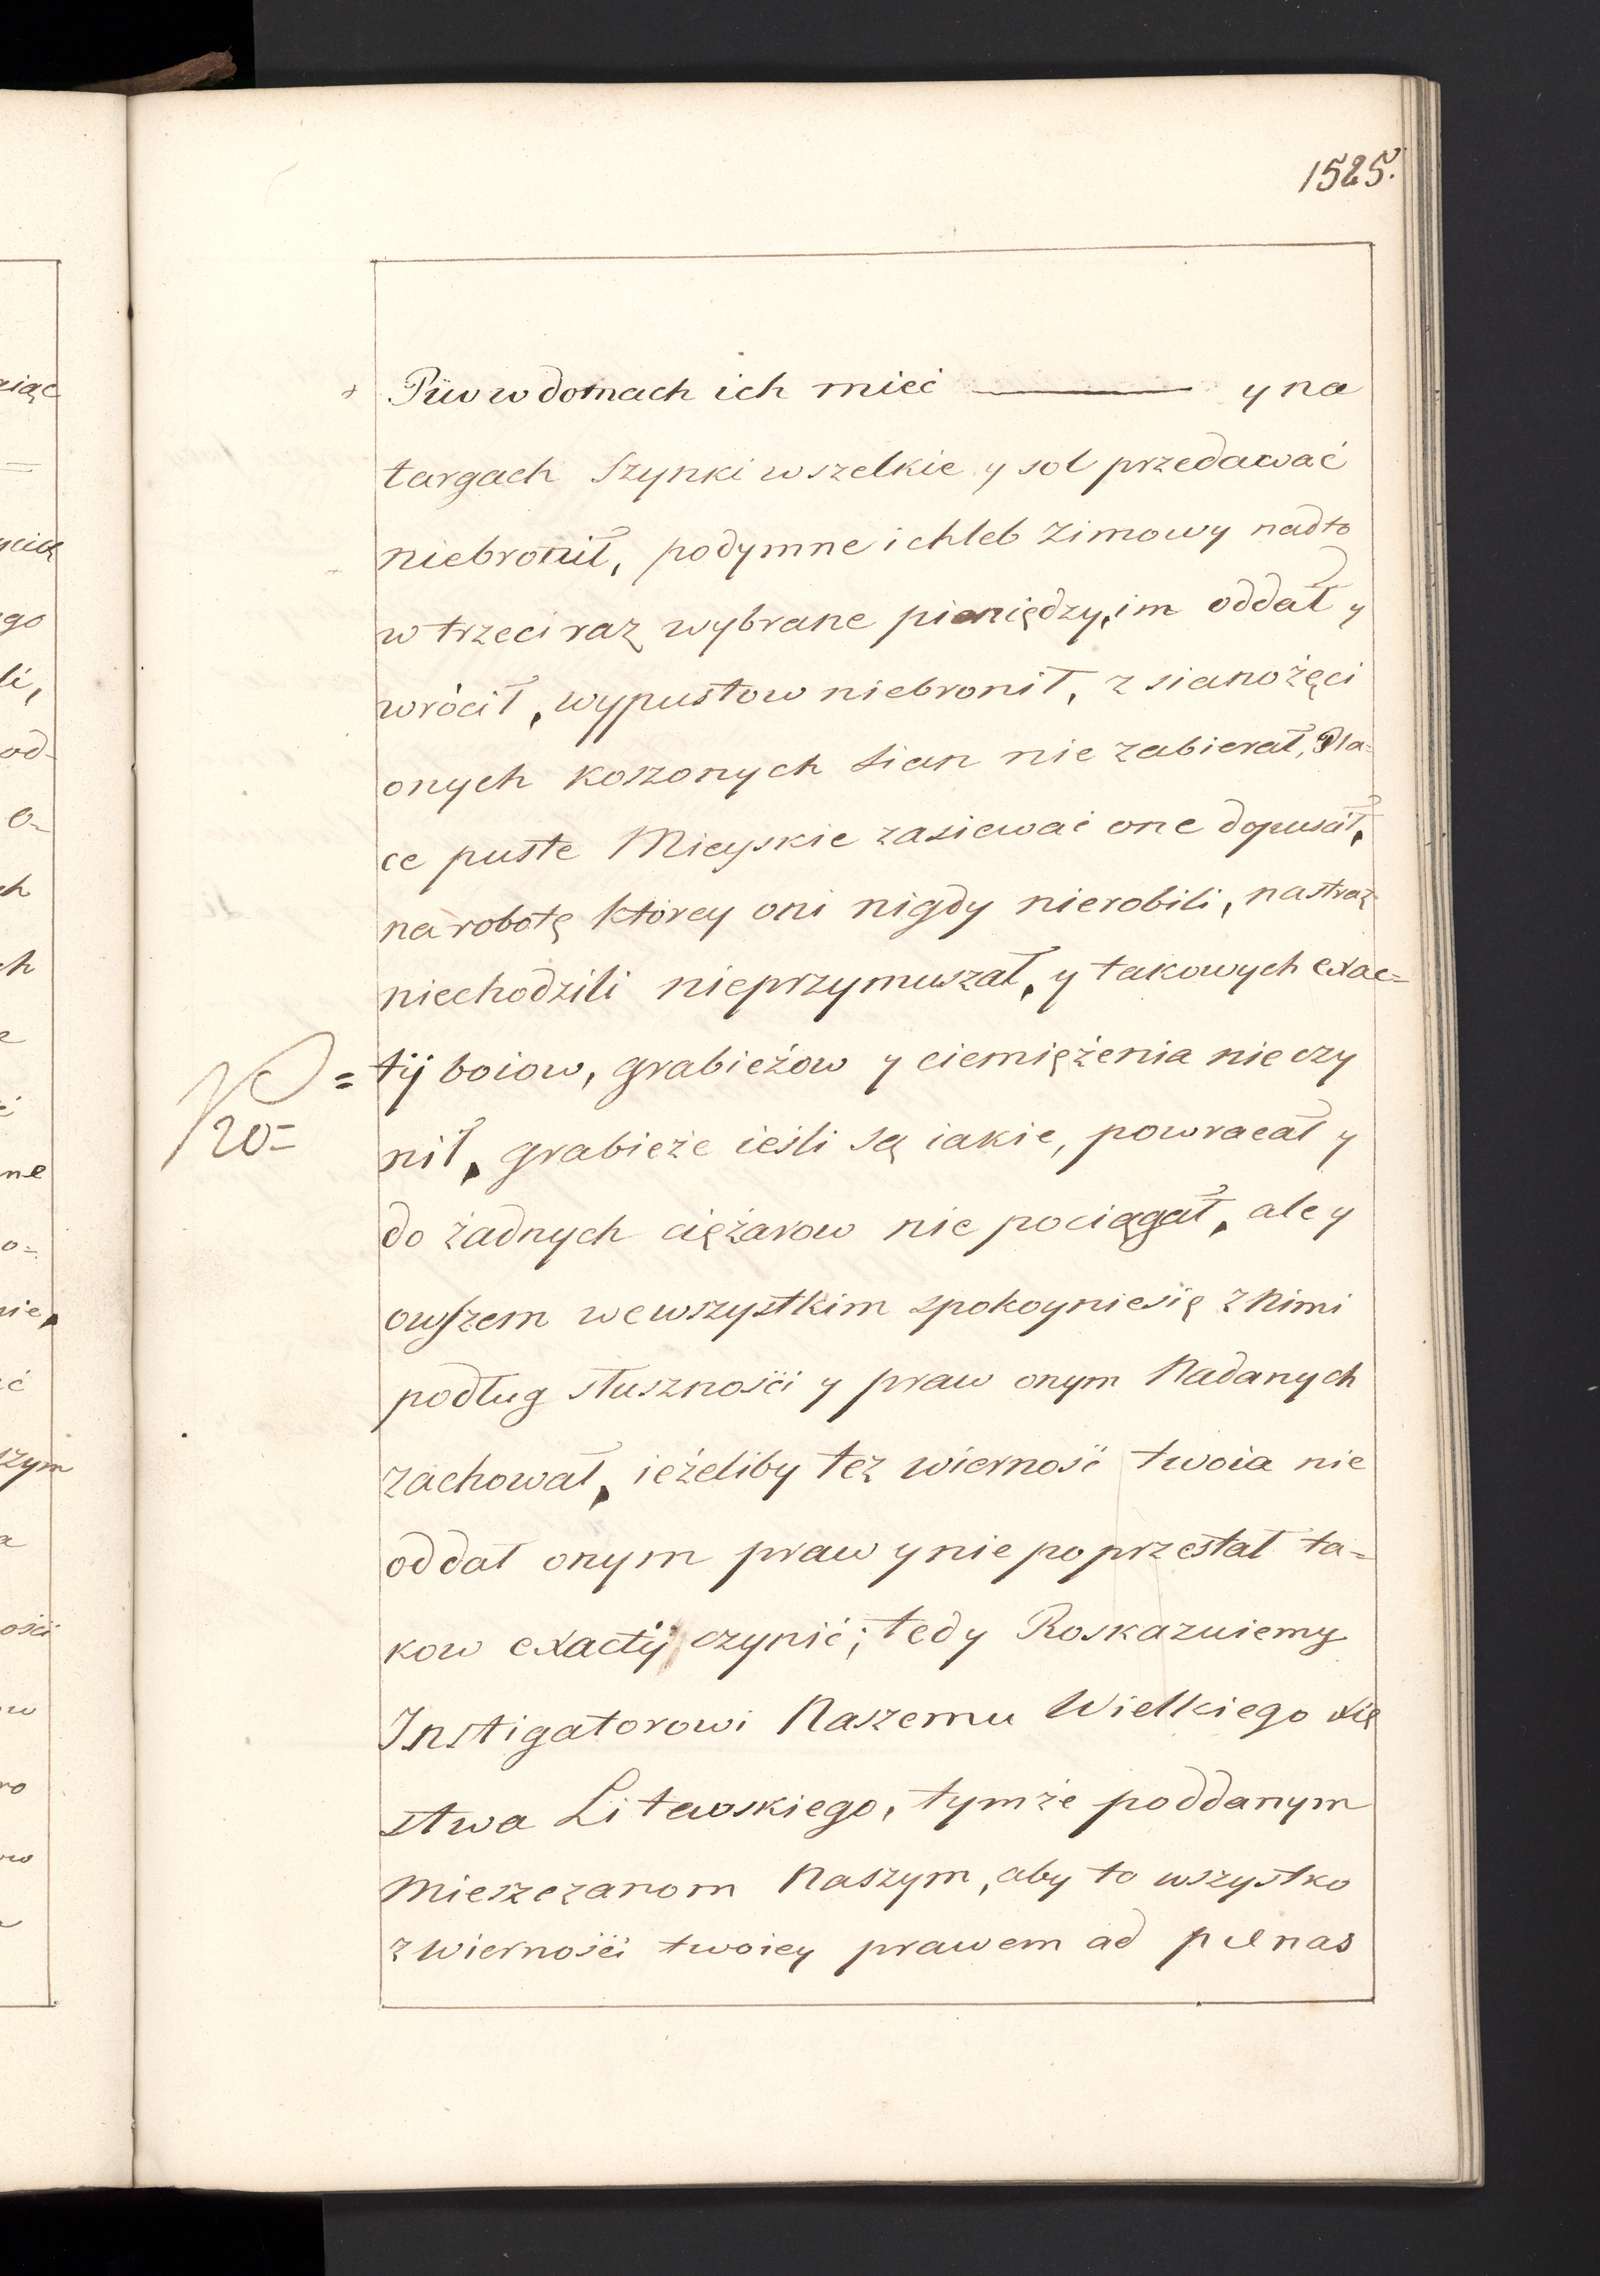 1525.
Piw w domach ich mieć ——— y na
targach Szynki wszelkie y sol przedawać
niebronił, podymne i chleb zimowy nadto
w trzeci raz wybrane pieniędzy, im oddał y
wrócił, wypustow niebronił, z sianożęci
onych koszonych sian nie zabierał, Pla-
ce puste Mieyskie zasiewać one dopuscił,
na robotę ktorey oni nigdy nierobili, na straz
niechodzili nieprzymuszał, y takowych exac=
= tij boiow, grabieżow y ciemiężenia nie czy
20=
nił, grabieże ieśli są iakie, powracał y
do żadnych ciężarow nie pociągał, ale y
owszem we wszystkim spokoynie się z nimi
podług słusznośći y praw onym Nadanych
zachował, ieżeliby tez wierność twoia nie
oddał onym praw y nie poprzestał ta=
kow exactij czynić; tedy Roskazuiemy
Instigatorowi Naszemu Wielkiego Xię
stwa Litewskiego, tymże poddanym
Mieszczanom Naszym, aby to wszystko
z wiernośći twoiey prawem ad pænas